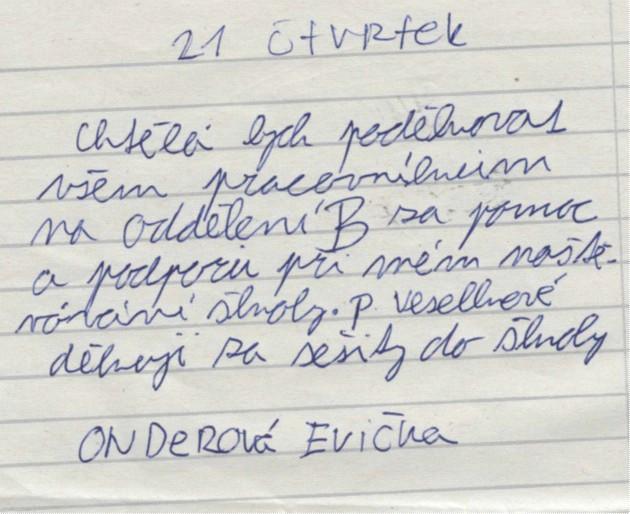 21 čtvrtek
Chtěla bych poděkovat
všem pracovníkum
na oddělení B za pomoc
a podporu při mém naště-
vování školy. P. Veselkové
děkuji za sešity do školy
ONDEROVÁ EVIČKA